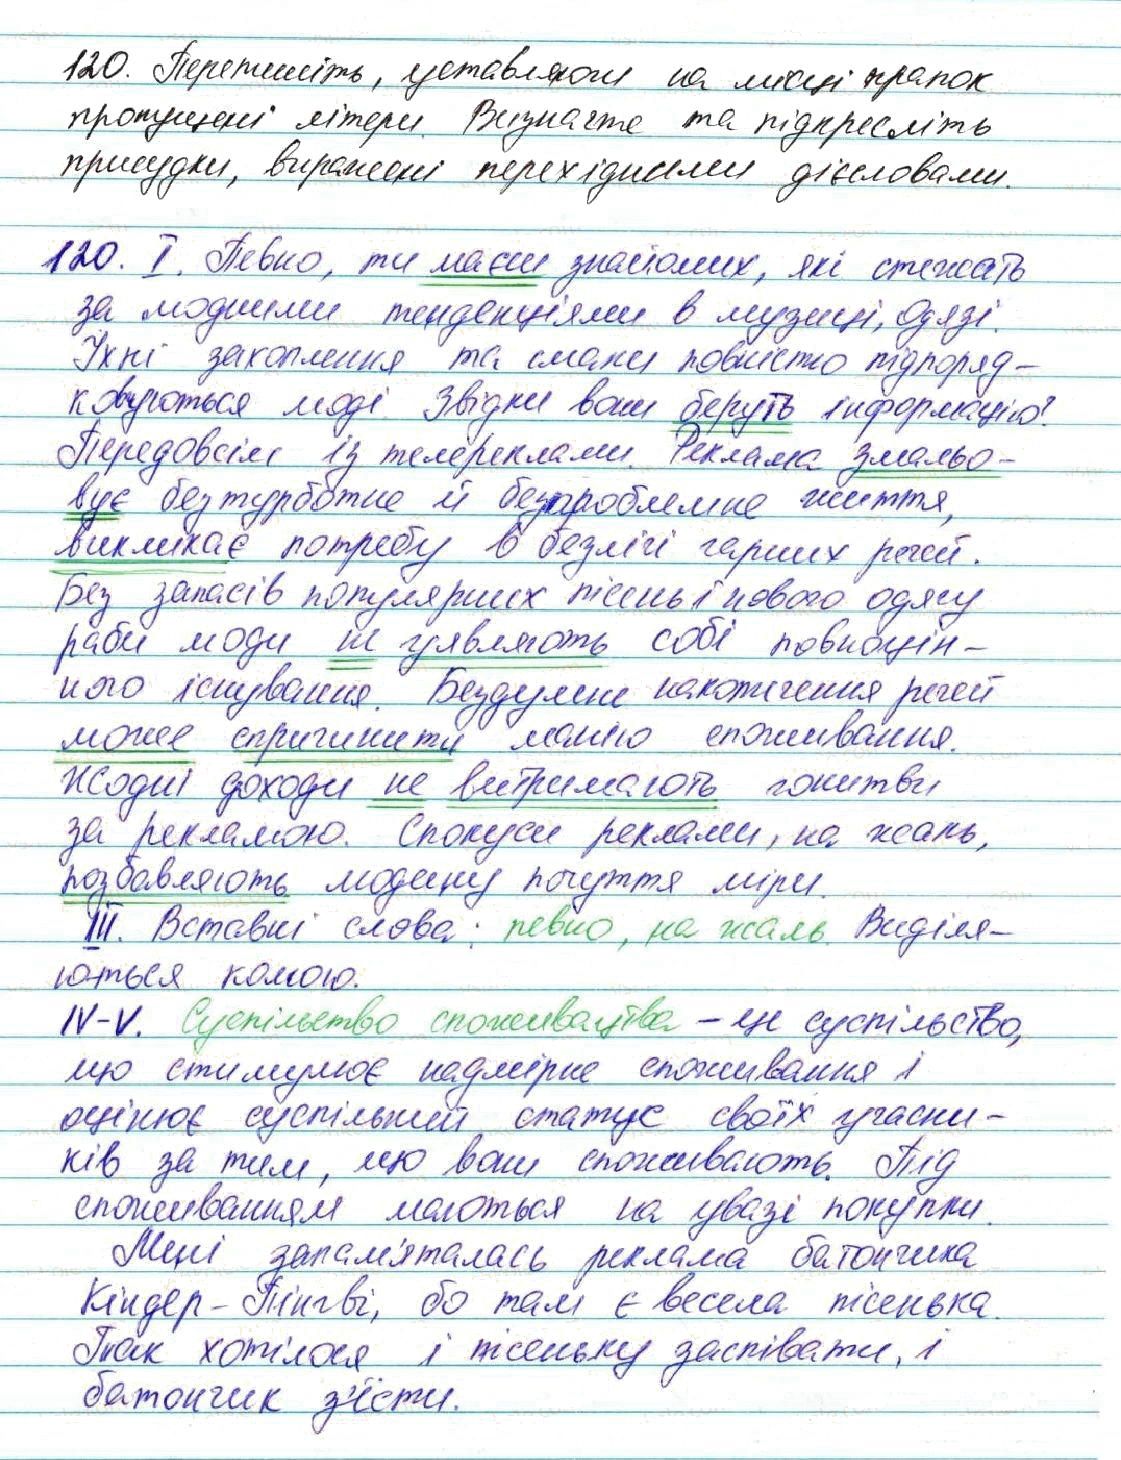 120. Перепишіть, уставляючи на місці крапок
пропущені літери. Визначте та підкресліть
присудки, виражені перехідними дієсловами.
120. I. Певно, ти маєш знайомих, які стежать
за модними тенденціями в музиці, одязі.
Їхні захоплення та смаки повністю підпоряд-
ковуються моді. Звідки вони беруть інформацію?
Передовсім із телереклами. Реклама змальо-
вує безтурботне й безпроблемне життя,
викликає потребу в безлічі гарних речей.
Без запасів популярних пісень і нового одягу
раби моди не уявляють собі повноцін-
ного існування. Бездумне накопичення речей
може спричинити манію споживання.
Жодні доходи не витримають гонитви
за рекламою. Спокуси реклами, на жаль,
позбавляють людину почуття міри.
III. Вставні слова: певно, на жаль. Виділя-
ються комою.
IV-V. Суспільство споживацтва – це суспільство,
що стимулює надмірне споживання і
оцінює суспільний статус своїх учасни-
ків за тим, що вони споживають. Під
споживанням маються на увазі покупки.
Мені запам'яталась реклама батончика
Кіндер-Пінгві, бо там є весела пісенька.
Так хотілося і пісеньку заспівати, і
батончик з'їсти.